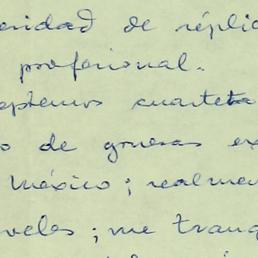 eridad de réplic
profesional.
eptemos cuarteta
o de gruesas ex
México; realmen
veles; me tranq